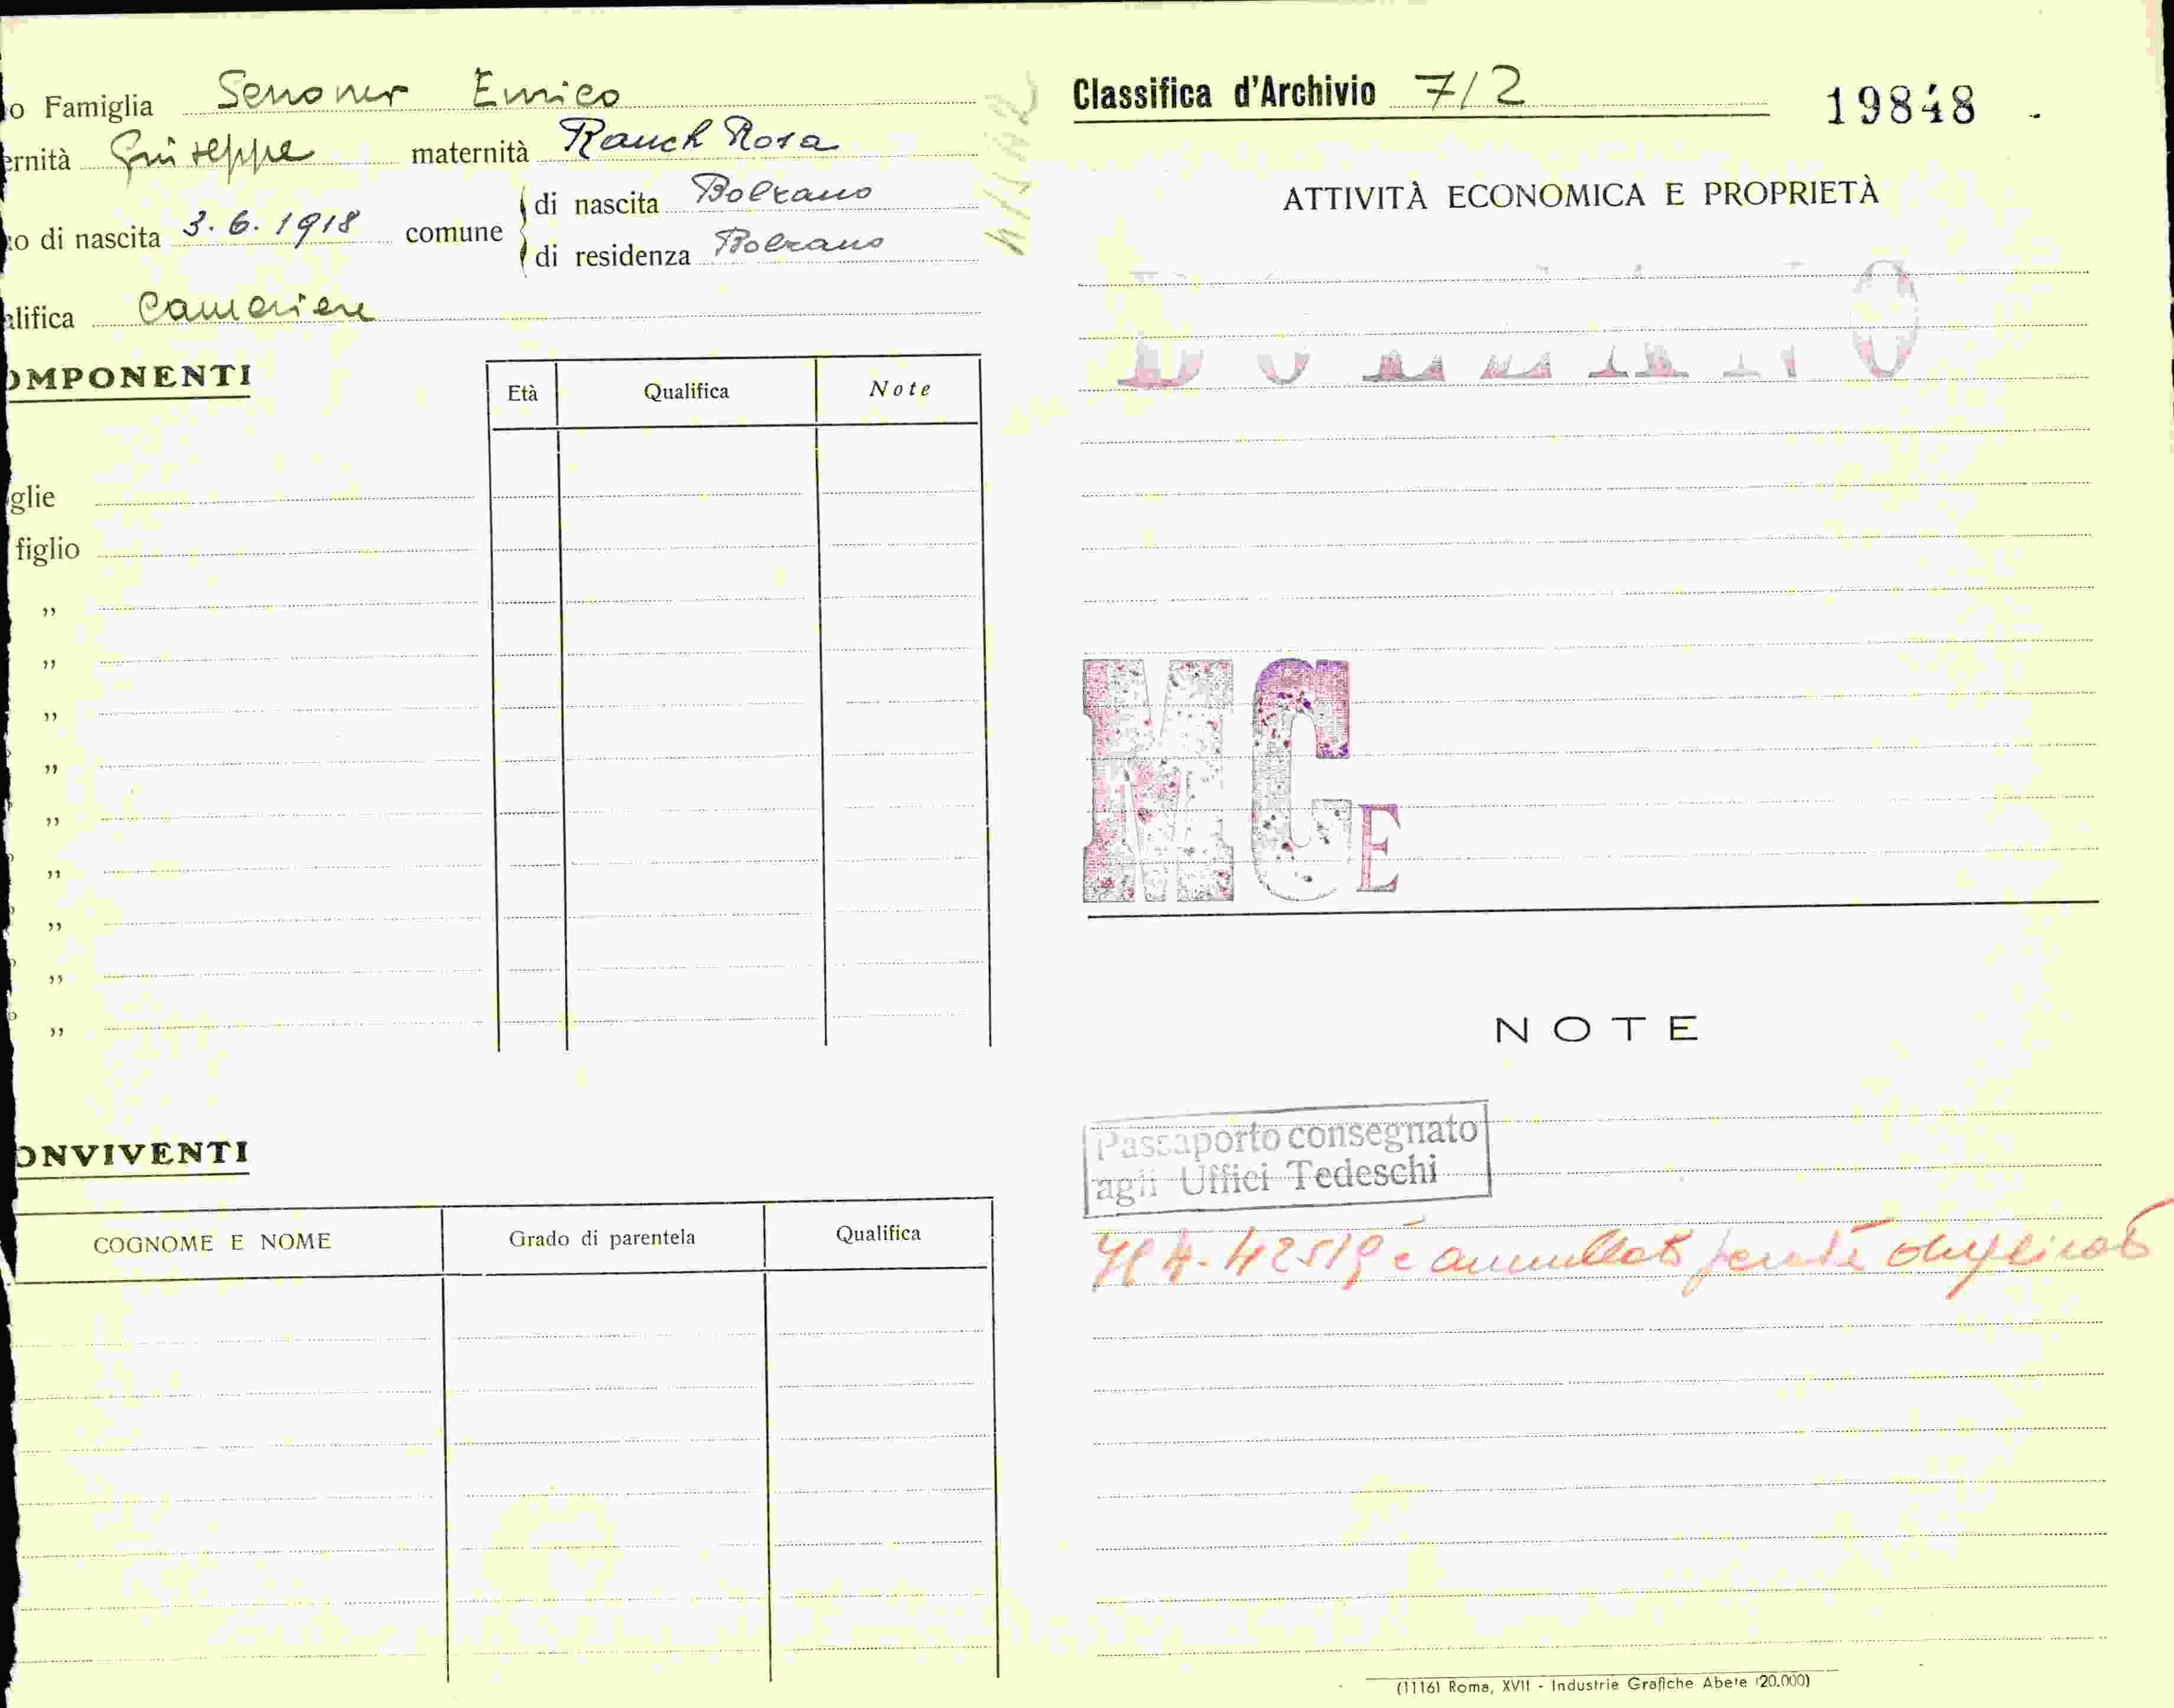 o Famiglia Senoner Enrico
ernità Giuseppe maternità Rauch Rosa
o di nascita 3. 6. 1918 comune di nascita Bolzano
di residenza Bolzano
alifica Cameriere
OMPONENTI
Età Qualifica Note
glie
figlio
,,
,,
,,
,,
,,
,,
,,
,,
,,
ONVIVENTI
COGNOME E NOME Grado di parentela Qualifica
Classifica d'Archivio 7/2 19848
ATTIVITÀ ECONOMICA E PROPRIETÀ
MCE
NOTE
Passaporto consegnato
agli Uffici Tedeschi
42519 è annullato perché duplicato
(1116) Roma, XVII - Industrie Grafiche Abete (20.000)